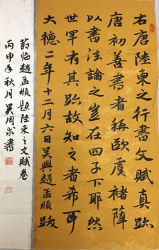 右唐陸柬之行書文賦真跡
唐初善書者稱歐虞褚薛
以書法論之豈在四子下耶然
世罕有其跡故知之者希耳
大德二年十二月六日吳興趙孟頫跋
临趙孟頫題陸柬之文賦卷
丙申年秋月吴周